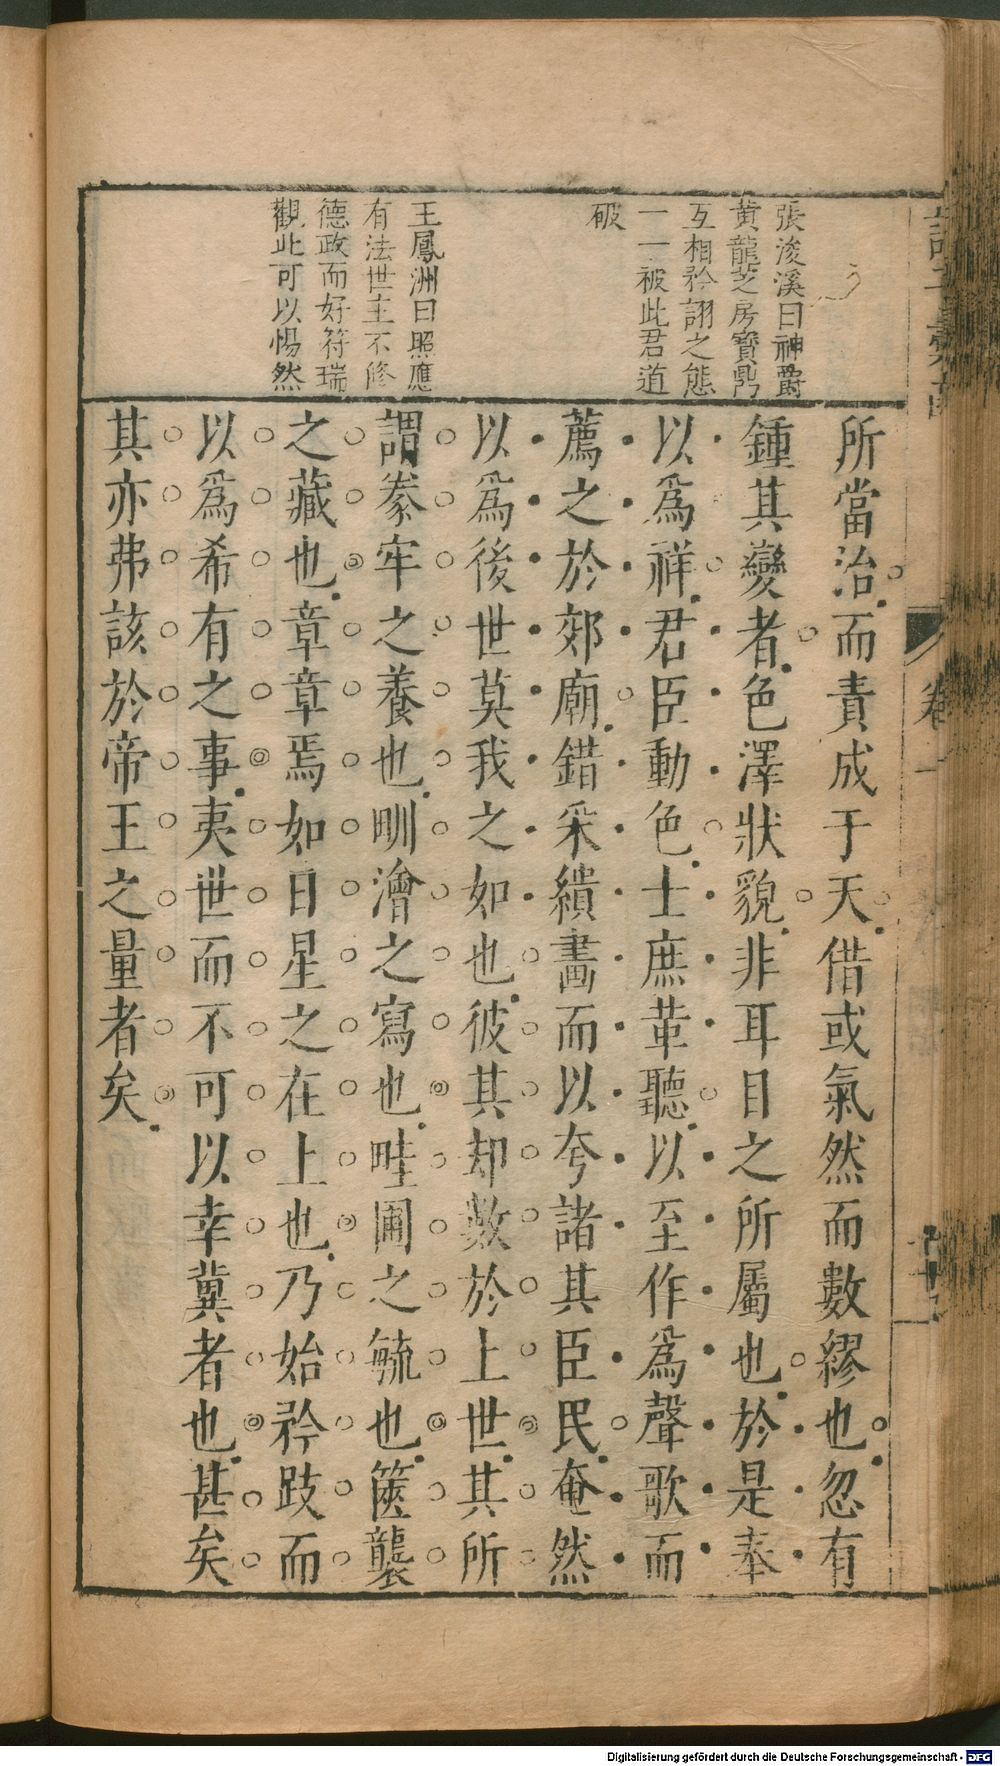 張浚溪曰神爵
黃龍芝房寶鼎
互相矜詡之態
一一被此君道
破
王鳳洲曰照應
有法世主不修
德政而好符瑞
觀此可以惕然
所當治而責成于天借或氣然而數繆也忽有
鍾其變者色澤狀貌非耳目之所屬也於是奉
以爲祥君臣動色士庶革聽以至作爲聲歌而
薦之於郊廟錯采繢畵而以夸諸其臣民奄然
以爲後世莫我之如也彼其却數於上世其所
謂豢牢之養也畎澮之寫也畦圃之毓也篋襲
之藏也章章焉如日星之在上也乃始矜跂而
以爲希有之事夷世而不可以幸冀者也甚矣
其亦弗該於帝王之量者矣
卷一
Digitalisierung gefördert durch die Deutsche Forschungsgemeinschaft - DFG